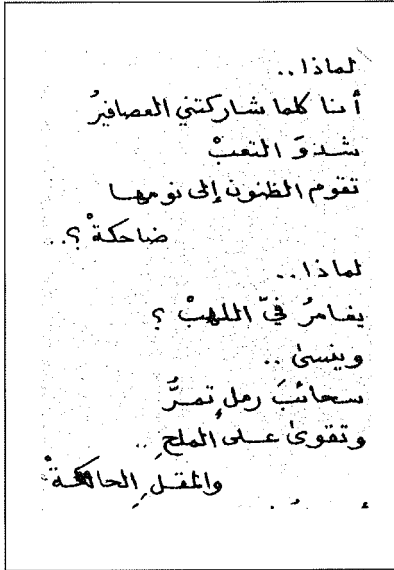 لماذا..
أنا كلما شاركتني العصافيرُ
شدوَ التعبْ
تقوم الظنون إلى نومها
ضاحكةْ ؟..
لماذا..
يغامرُ فيّ اللهبْ ؟
وينسى ..
سحائبَ رملٍ تمرُّ
وتقوى على الملح ..
والمقلِ الحالكةْ